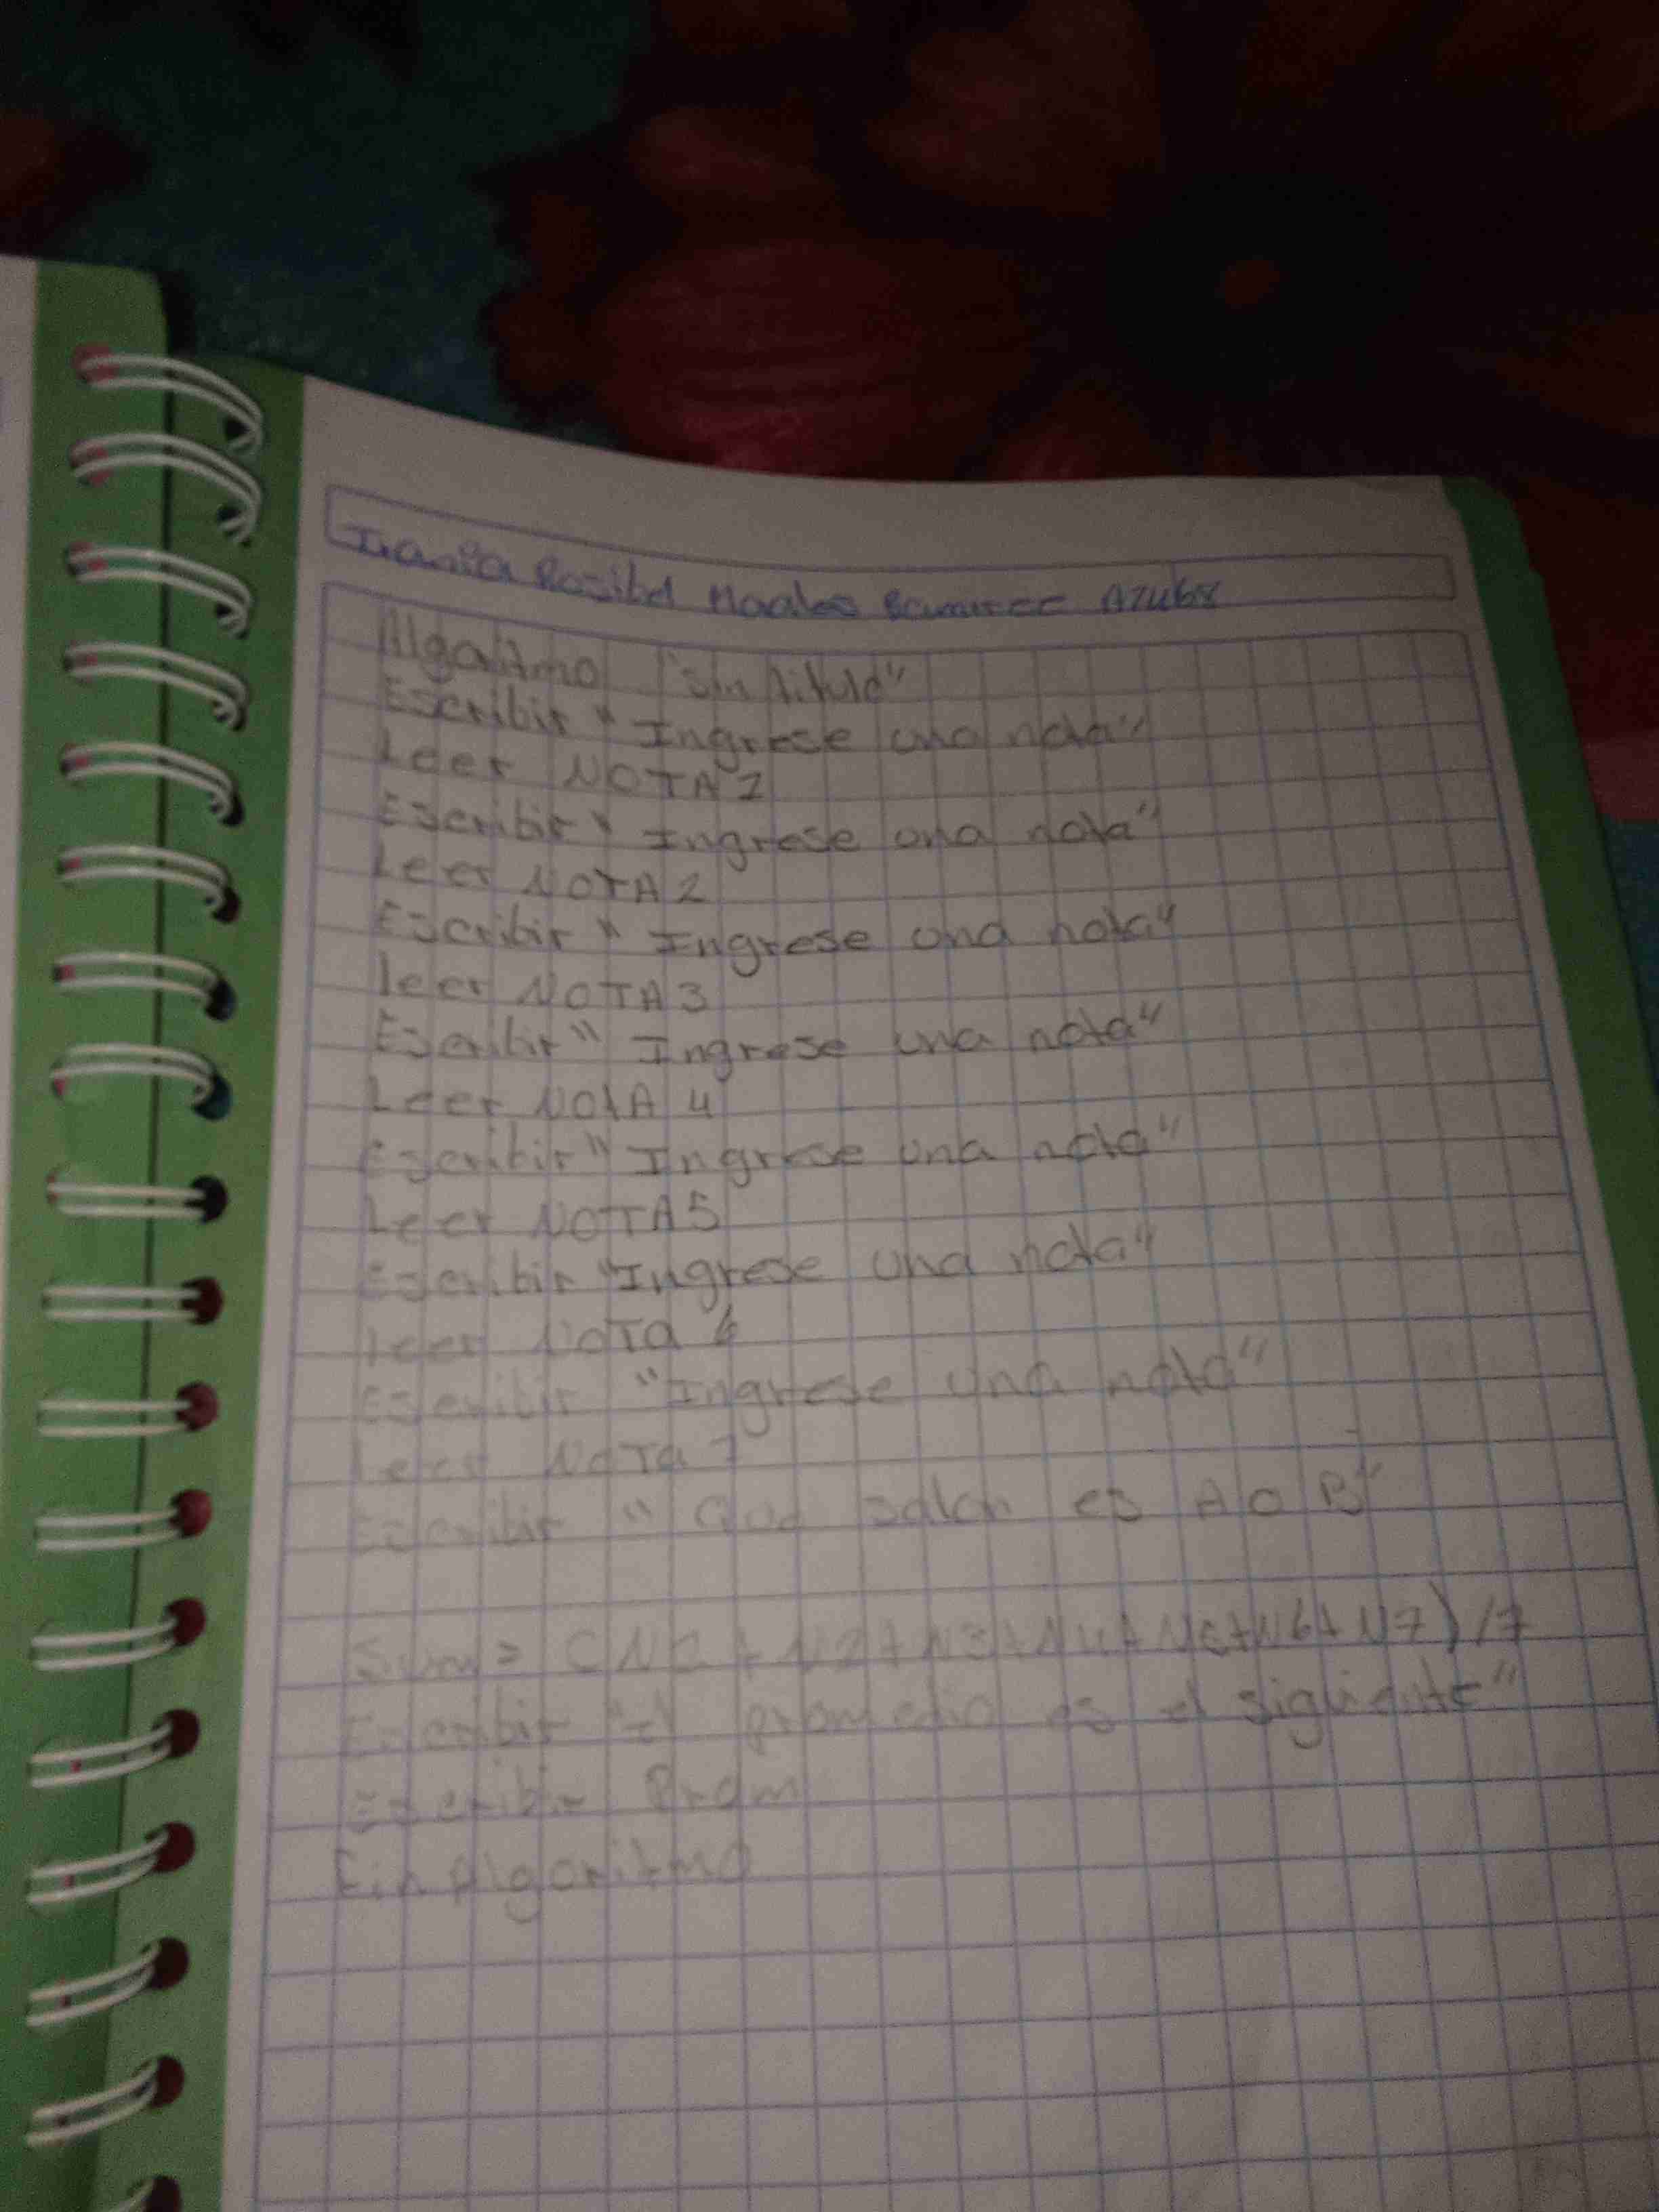 Rosibel Moales
Algoritmo "sin titulo"
Escribir "Ingrese una nota"
Leer NOTA 1
Escribir "Ingrese una nota"
Leer NOTA 2
Escribir "Ingrese una nota"
leer NOTA 3
Escribir "Ingrese una nota"
Leer NOTA 4
Escribir "Ingrese una nota"
Leer NOTA 5
Escribir "Ingrese una nota"
Leer NOTA 6
Escribir "Ingrese una nota"
Leer NOTA 7
Escribir " salon es A O B"
+ N2 + N3 + N4 + + N6 + N7) / 7
Escribir "el promedio es el siguiente"
Escribir Prom
Fin Algoritmo